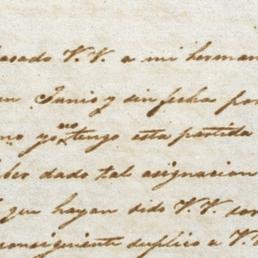 pasado V. V. a mi herman
en Junio y sin fecha por
no yo no tengo esta partida
ber dado tal asignacion
que hayan sido V. V. sor
consiguiente suplico a V. V.